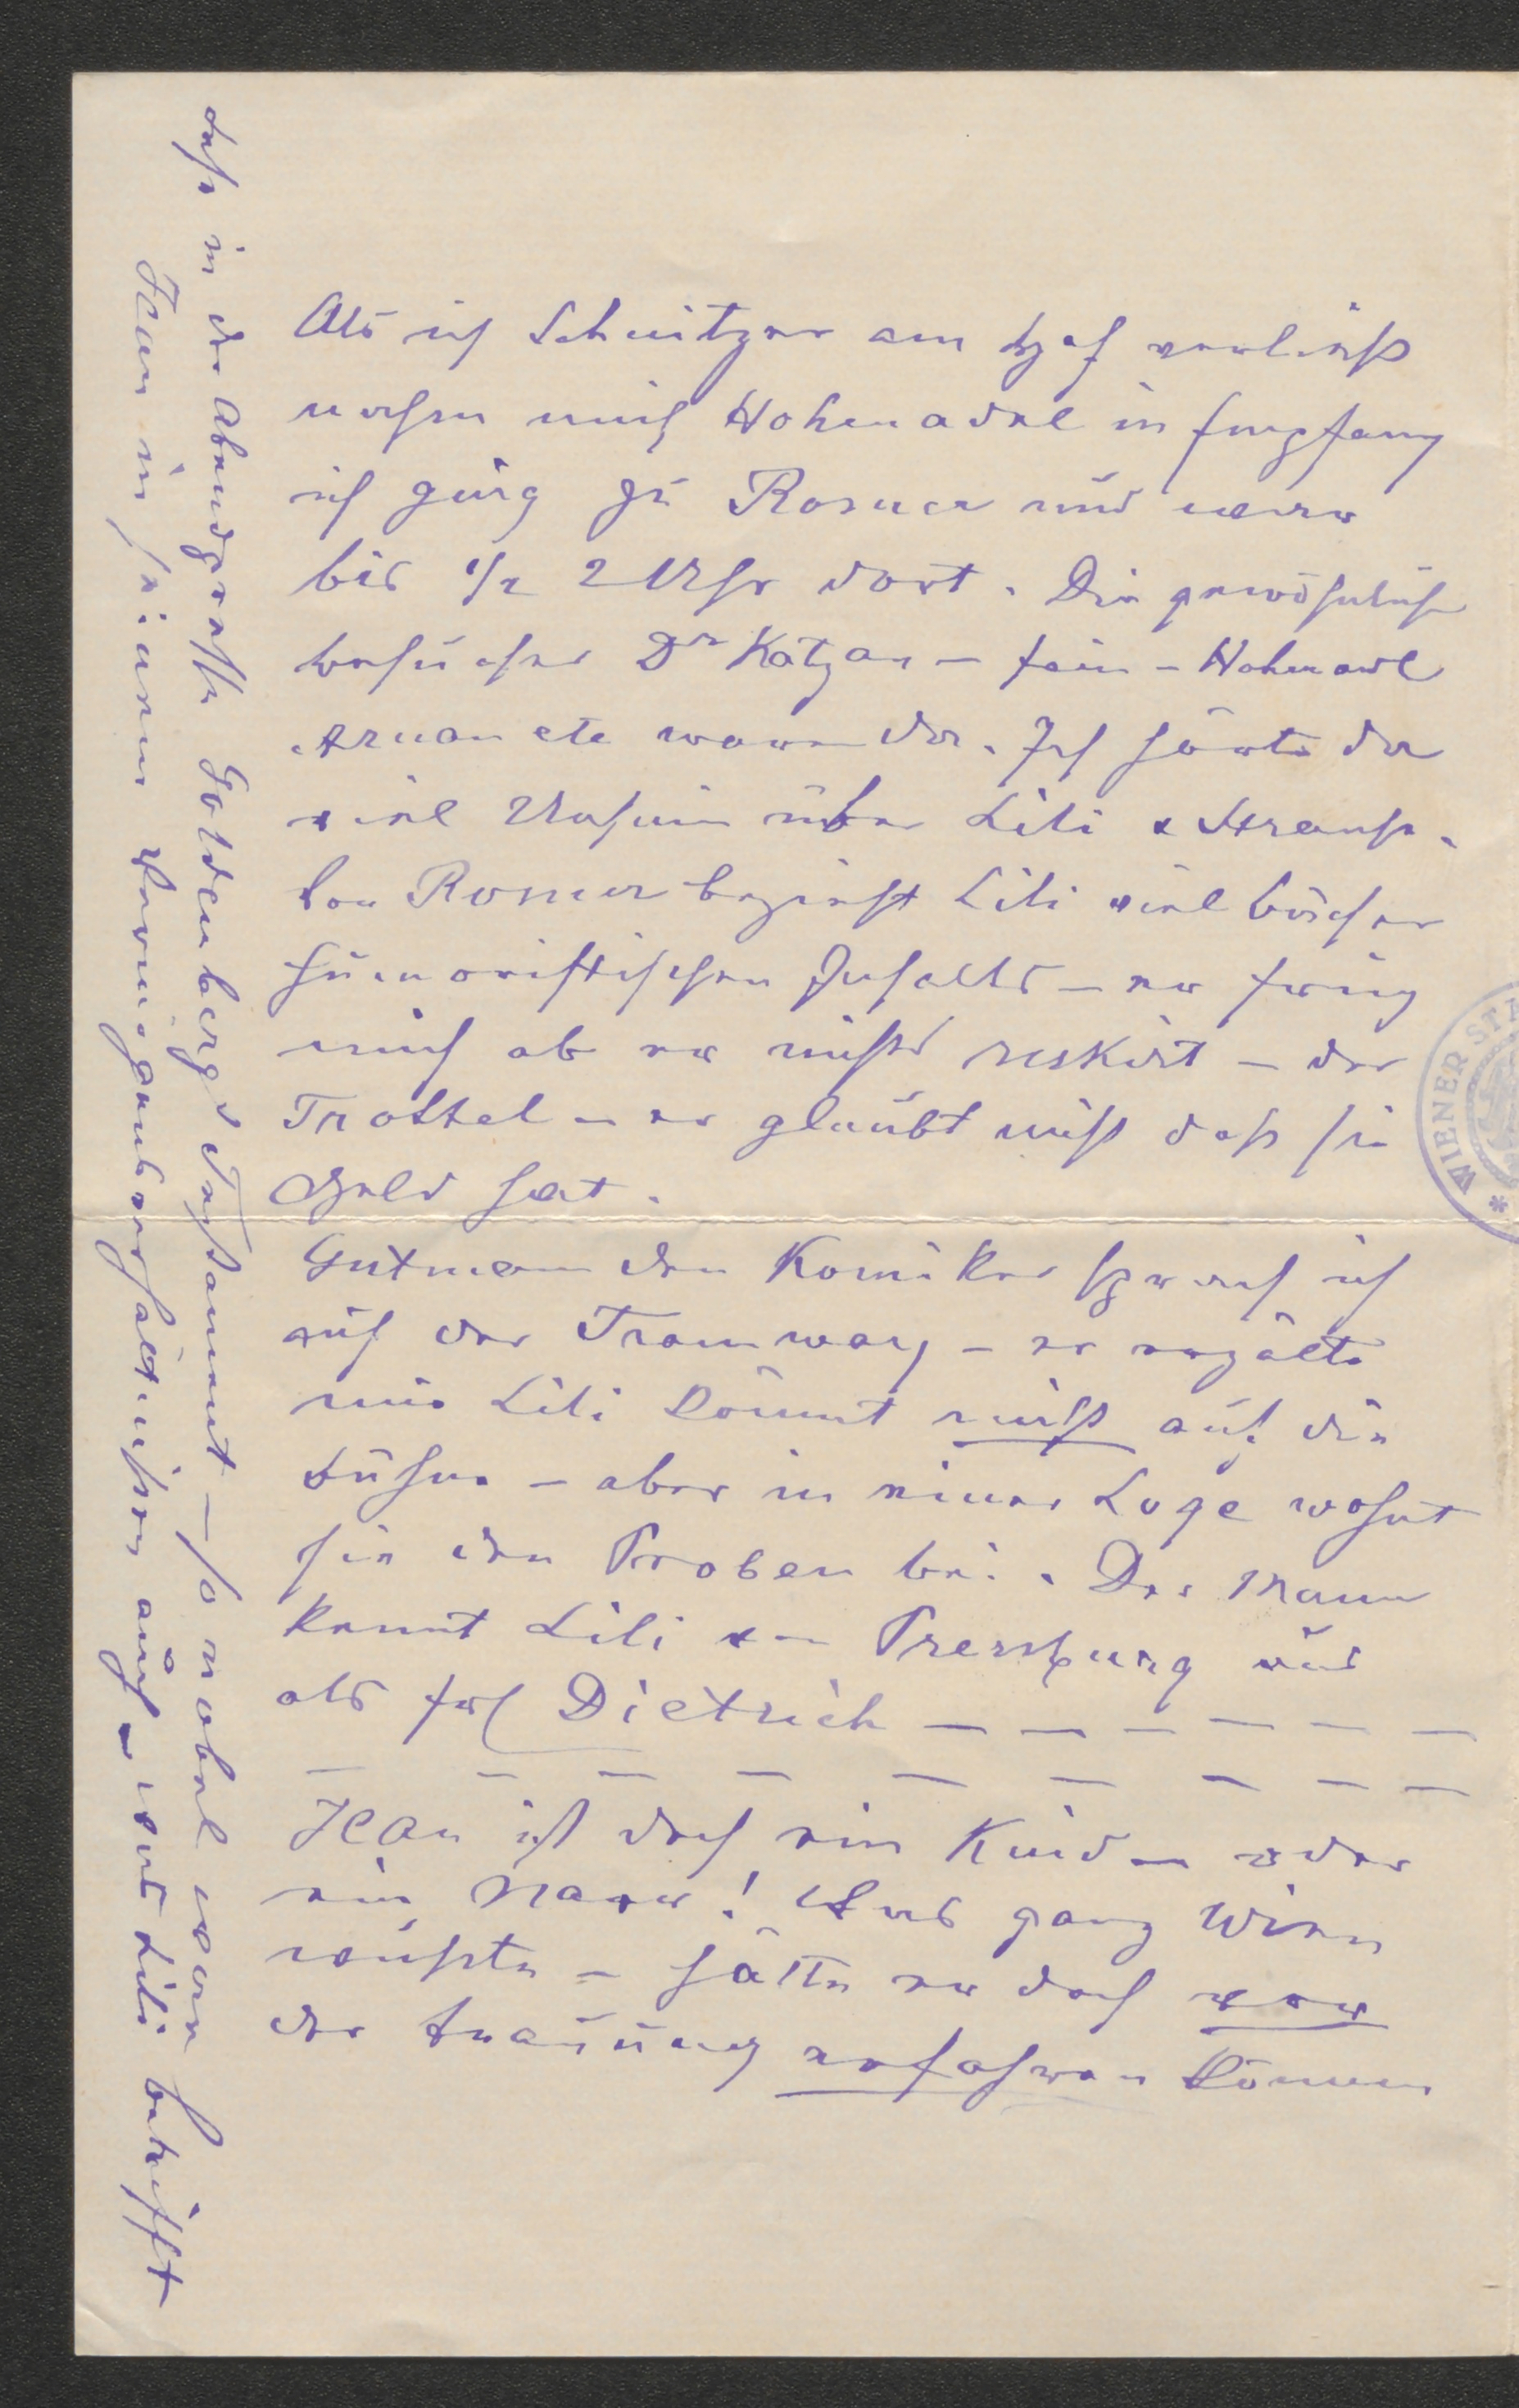 Als ich Schnitzer am Hof verließ
nahm mich Hohenadel in Empfang
ich ging zu Rosner und war
bis 1/2 2 Uhr dort. Die gewöhnlichen
Besucher Dr Katzer – – Hohenadl
etc waren da. Ich hörte da
viel Unsinn über Lili & Strauß.
Bei Rosner bezieht Lili viel Bücher
humoristischen Inhalts – er frug
mich ob er nichts reskirt – der
Trottel – er glaubt nicht daß sie
Geld hat.
Gutman den Komiker sprach ich
auf der Tramway – er erzälte
mir Lili kömmt nicht auf die
Bühne – aber in einer Loge wohnt
sie den Proben bei. Der Mann
kennt Lili von Pressburg aus
als Frl Dietrich – – – – – –
– – – – – – – – –
Jean ist doch ein Kind – oder
ein Narr! Was ganz Wien
wußte – hätte er doch vor
der Trauung erfahren können
daß in der Abendpresse Goldenbergs Testament – so nobel war
Jean in seinen Vermögensverhältnissen auch – was Lili betrifft
WIENER STA